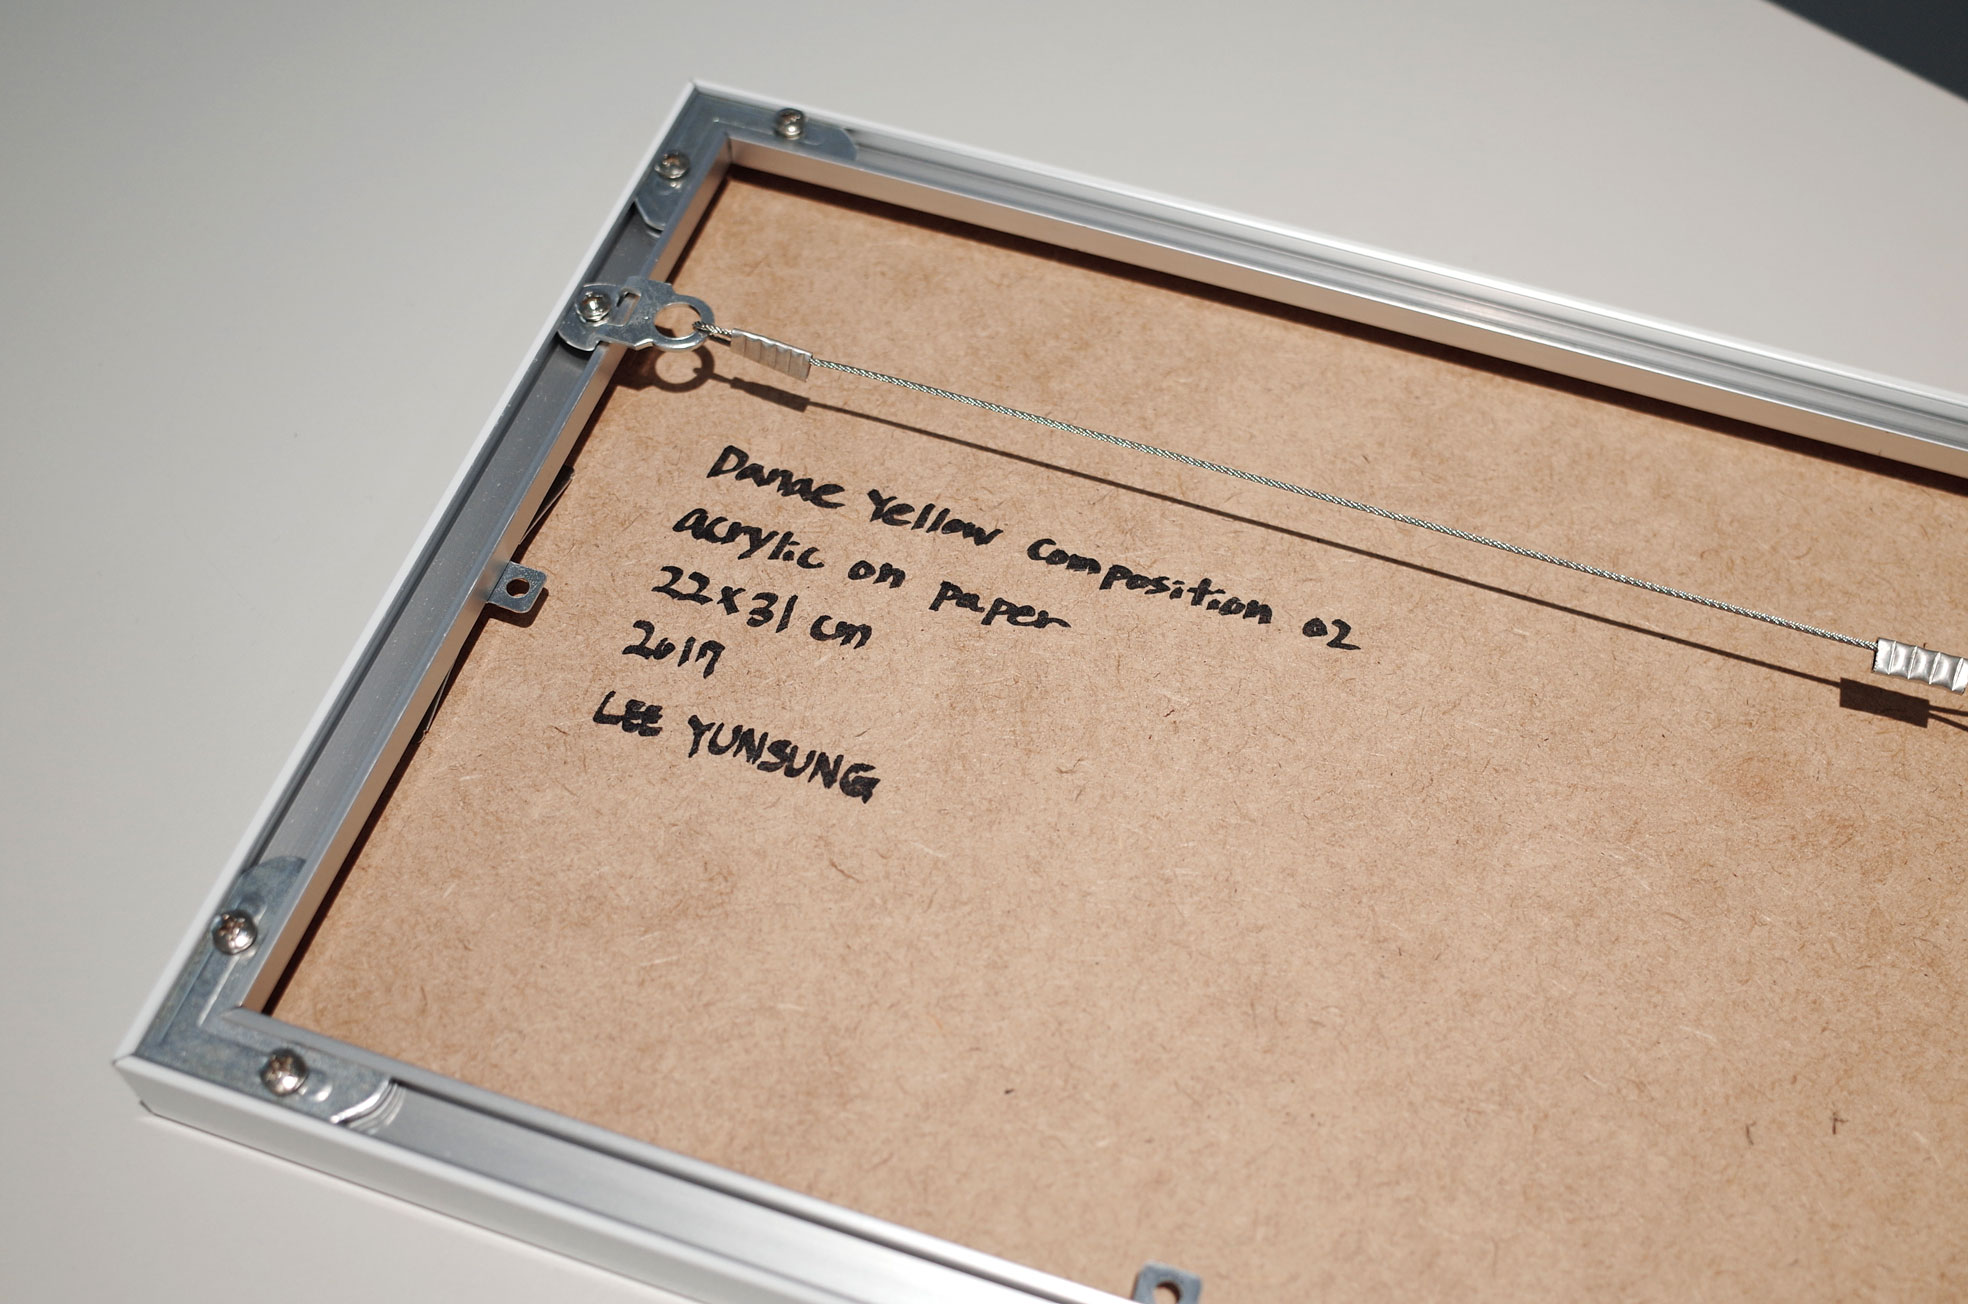 Danae Yellow Composition 02
acrylic on paper
22x31 cm
2017
LEE YUNSUNG